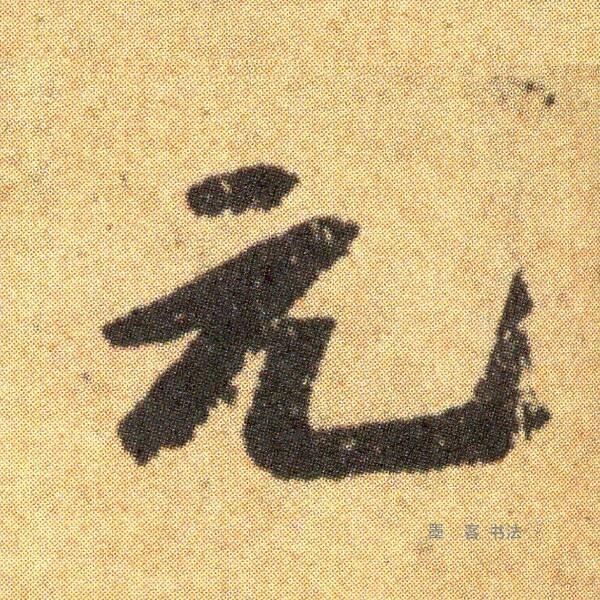 元
墨 客 书法